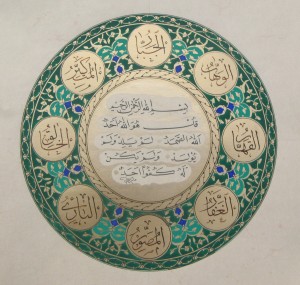 الجبار
المتكبر
الخالق
البارئ
المصور
الغفار
القهار
الوهاب
بسم الله الرحمن الرحيم
قل هو الله أحد
الله الصمد لم يلد ولم
يولد ولم يكن
له كفوا أحد